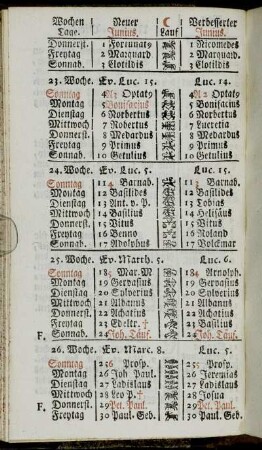 Wochen Neuer ☾ Verbesserter
Tage. Junius. Lauf Junius.
Donnerst. 1 Fortunat9 1 Nicomedes
Freytag 2 Marquard 2 Marquard.
Sonnab. 3 Clotildis 3 Clotildis
23. Woche. Ev. Luc. 15. Luc. 14.
Sonntag 4 Optat9 4 2 Optat9
Montag 5 Bonifacius 5 Bonifacius
Dienstag 6 Norbertus 6 Norbertus
Mittwoch 7 Robertus 7 Lucretia
Donnerst. 8 Medardus 8 Medardus
Freytag 9 Primus 9 Primus
Sonnab. 10 Getulius 10 Getulius
24. Woche. Ev. Luc. 5. Luc. 15.
Sonntag 11 4 Barnab. 11 3 Barnab.
Montag 12 Basilides 12 Basilides
Dienstag 13 Ant. v. P. 13 Tobias
Mittwoch 14 Basilius 14 Helisäus
Donnerst. 15 Vitus 15 Vitus
Freytag 16 Benno 16 Roland
Sonnab. 17 Adolphus 17 Volckmar
25. Woche. Ev. Matth. 5. Luc. 6.
Sonntag 18 5 Mar. M 18 4 Arnolph.
Montag 19 Gervasius 19 Gervasius
Dienstag 20 Sylverius 20 Sylverius
Mittwoch 21 Albanus 21 Albanus
Donnerst. 22 Achatius 22 Achatius
Freytag 23 Edeltr. † 23 Basilius
F. Sonnab. 24 Joh. Täuf. 24 Joh. Täuf.
26. Woche. Ev. Marc. 8. Luc. 5.
Sonntag 25 6 Prosp. 25 5 Prosp.
Montag 26 Joh. Paul. 26 Jeremias
Dienstag 27 Ladislaus 27 Ladislaus
Mittwoch 28 Leo P. † 28 Josua
F. Donnerst. 29 Pet. Paul. 29 Pet. Paul.
Freytag 30 Paul. Ged. 30 Paul. Ged.